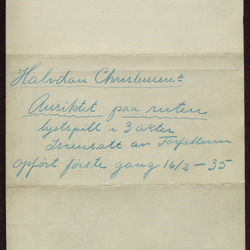 Halvdan Christensen:
Ansiktet paa ruten
lystspill i 3 akter
Iscensatt av Forfatteren
Opført første gang 16/2 – 35